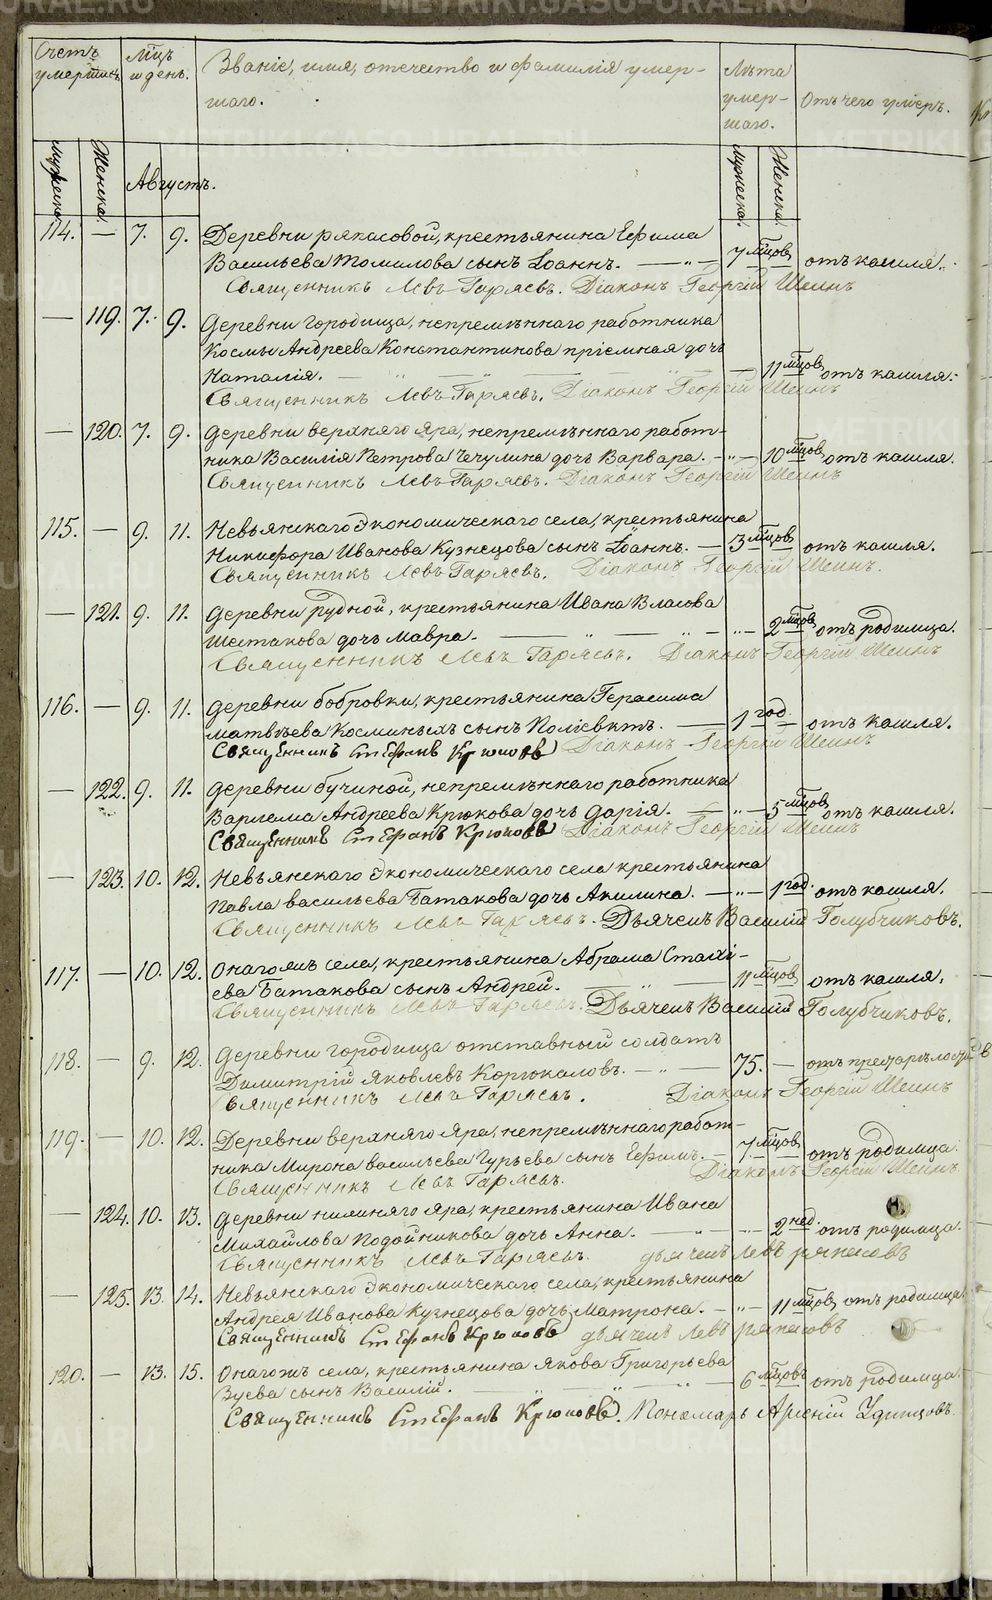 METRIKI.GASU-URAL.RU
Счетъ умершихъ
Мцъ и день.
Званіе, имя, отечество и фамилія умер-
шаго.
Лѣта умер-
шаго.
Отъ чего умеръ.
Мужеска
Женска.
Августъ.
Мужеска
Женска.
114. — 7. 9. Деревни рякасовой, крестьянина Ефима
Васильева Томилова сынъ Іоаннъ. — " — 7 мцовъ отъ кашля.
Священникъ Левъ Гаряевъ. Діаконъ Георгій Шеинъ
— 119. 7. 9. Деревни городища, непремѣннаго работника
Космы Андреева Константинова пріемная дочь
Наталія. — 11 мцовъ отъ кашля.
Священникъ Левъ Гаряевъ. Діаконъ Георгій Шеинъ
— 120. 7. 9. деревни верхняго яра, непремѣннаго работ-
ника Василія Петрова Чечулина дочь Варвара. — " — 10 мцовъ отъ кашля.
Священникъ Левъ Гаряевъ. Діаконъ Георгій Шеинъ
115. — 9. 11. Невьянскаго Экономическаго села, крестьянина
Никифора Иванова Кузнецова сынъ Іоаннъ. — 3 мцовъ отъ кашля.
Священникъ Левъ Гаряевъ. Діаконъ Георгій Шеинъ.
— 121. 9. 11. деревни рудной, крестьянина Ивана Власова
Шестакова дочь Мавра. — " — 2 мцовъ отъ родимца.
Священникъ Левъ Гаряевъ. Діаконъ Георгій Шеинъ
116. — 9. 11. деревни бобровки, крестьянина Герасима
Матвѣева Косминыхъ сынъ Поліевктъ. — 1 год. — отъ кашля.
Священникъ Стефанъ Крюковъ Діаконъ Георгій Шеинъ
— 122. 9. 11. деревни бучиной, непремѣннаго работника
Варлама Андреева Крюкова дочь Дарія. — " — 5 мцовъ отъ кашля.
Священникъ Стефанъ Крюковъ Діаконъ Георгій Шеинъ
— 123. 10. 12. Невьянскаго Экономическаго села крестьянина
Павла васильева Батакова дочь Акилина. — " — 1 год. отъ кашля.
Священникъ Левъ Гаряевъ. Дьячекъ Василій Голубчиковъ.
117. — 10. 12. Онагожъ села, крестьянина Абрама Стахі-
ева Батакова сынъ Андрей. — 11 мцовъ отъ кашля.
Священникъ Левъ Гаряевъ. Дьячекъ Василій Голубчиковъ.
118. — 9. 12. деревни городища отставный солдатъ
Димитрій Яковлевъ Корюкаловъ. — " — 75. —
Священникъ Левъ Гаряевъ. Діаконъ Георгій Шеинъ
119. — 10. 12. Деревни верхняго яра, непремѣннаго работ-
ника Мирона васильева Гурьева сынъ Ефимъ. — 7 мцовъ отъ родимца.
Священникъ Левъ Гаряевъ. Діаконъ Георгій Шеинъ
— 124. 10. 13. деревни нижняго яра, крестьянина Ивана
Михайлова Подойникова дочь Анна. — " — 2 нед. отъ родимца.
Священникъ Левъ Гаряевъ. дьячекъ Левъ ряпасовъ
— 125. 13. 14. Невьянскаго Экономическаго села, крестьянина
Андрея Иванова Кузнецова дочь Матрона. — " — 11 мцовъ отъ родимца.
Священникъ Стефанъ Крюковъ дьячекъ Левъ ряпасовъ
120. — 13. 15. Онагожъ села, крестьянина Якова Григорьева
Зуева сынъ Василій. — " — 6 мцовъ отъ родимца.
Священникъ Стефанъ Крюковъ. Пономарь Арсеній Удинцовъ.
METRIKI.GASU-URAL.RU